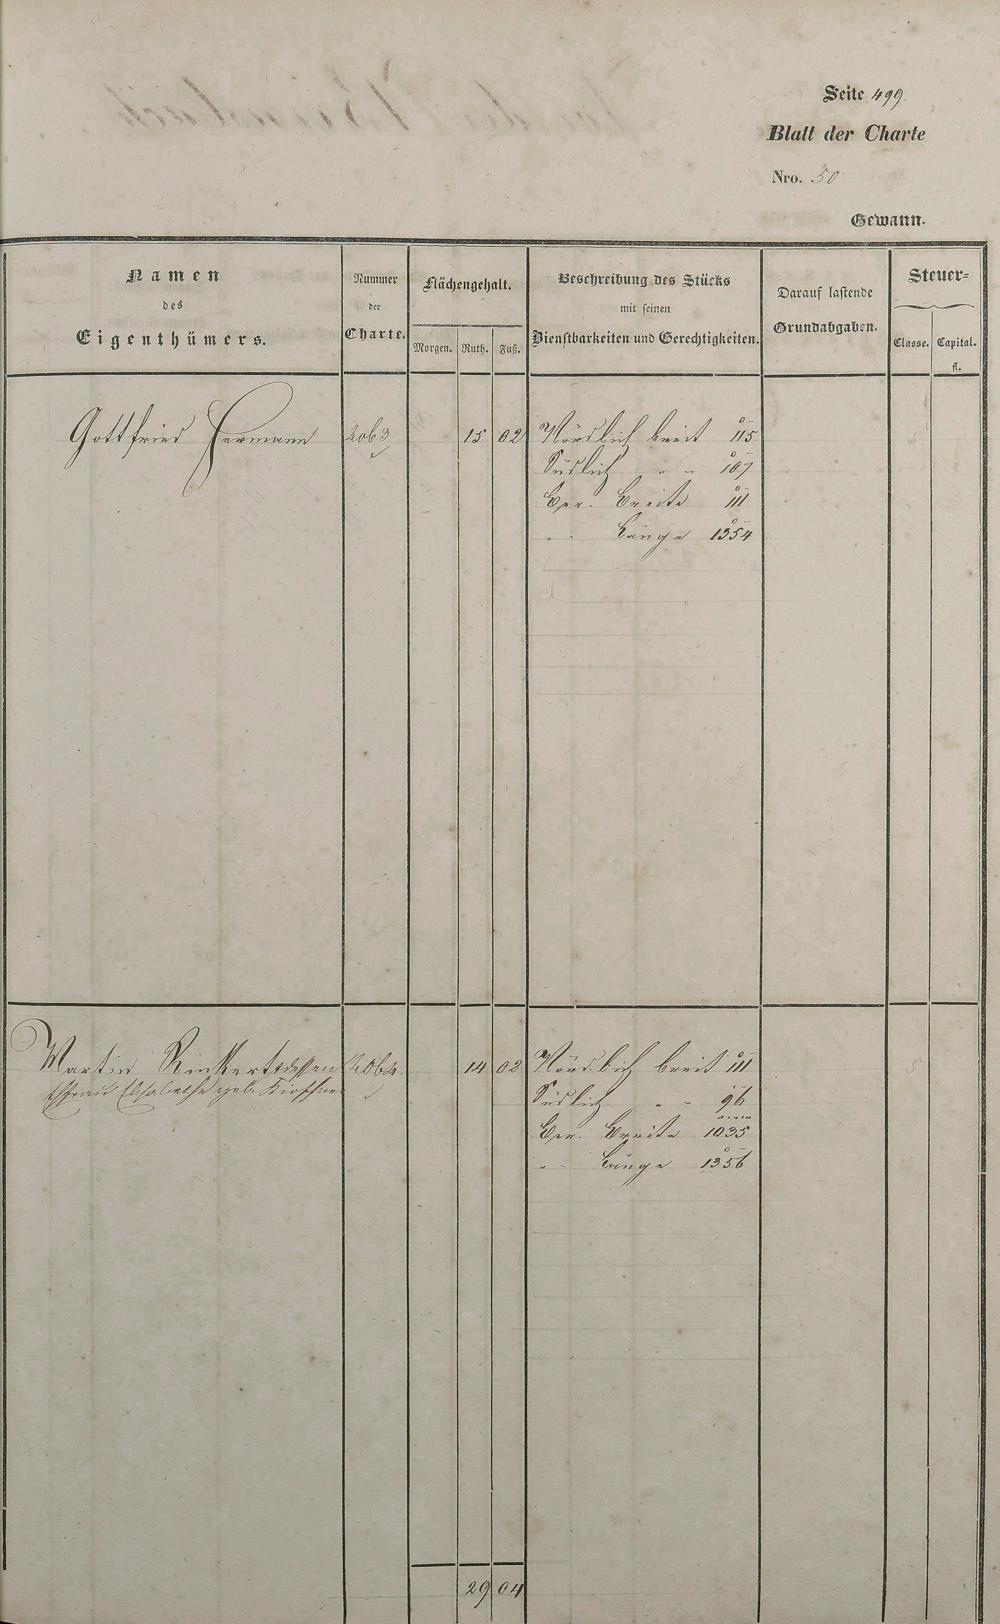 Seite 499.
Blatt der Charte
Nro. 50
Gewann.
Namen
des
Eigenthümers.
Nummer
der
Charte.
Flächengehalt.
Morgen. Ruth. Fuß.
Beschreibung des Stücks
mit seinen
Dienstbarkeiten und Gerechtigkeiten.
Darauf lastende
Grundabgaben.
Steuer=
Classe. Capital.
fl.
Gottfried Hermann 2063 15 02 Nördlich breit 115
Südlich " " 107
Ber. Breite 111
" " Länge 1354
Martin Rinkert dessen 2064. 14 02 Nördlich breit 111
Ehfrau Elisabetha geb. Kirschner
Südlich " " 96
Ber. Breite 1035
" " Länge 1356
29 04